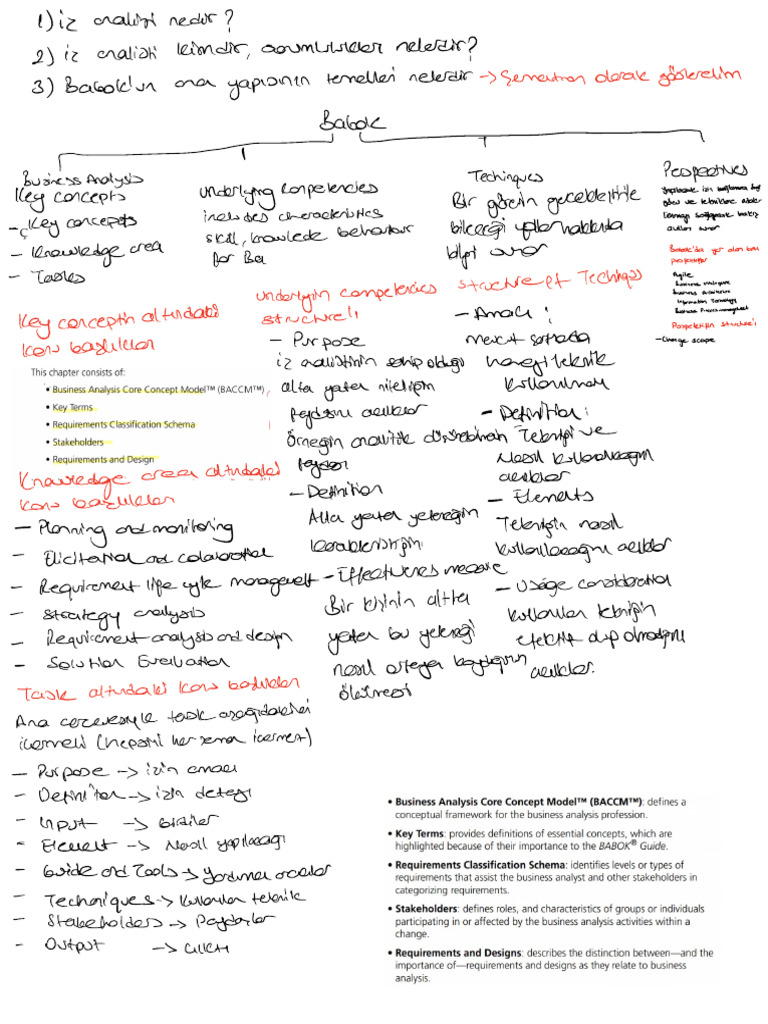 1) iz analizi nedir ?
2) iz analisti kimdir, sorumlulukları nelerdir?
3) Babok'un ana yapısının temelleri nelerdir → Şematron olarak gösterelim
Babok
Business Analysis
Key concepts
- Key concepts
- Knowledge area
- Tasks
Key conceptin altındaki
konu başlıkları
This chapter consists of:
• Business Analysis Core Concept Model™ (BACCM™)
• Key Terms
• Requirements Classification Schema
• Stakeholders
• Requirements and Design
Knowledge area altındaki
konu başlıkları
- Planning and monitoring
- Elicitation and colaboration
- Requirement life cycle management
- Strategy analysis
- Requirement analysis and design
- Solution Evaluation
Task altındaki konu başlıkları
Ana çerçevesiyle task aşağıdakileri
içermeli (hepsini her zaman içermez)
- Purpose → işin amacı
- Definition → işin detayı
- Input → Girdiler
- Element → Nasıl yapılacağı
- Guide and Tools → yardımcı araçlar
- Techniques → Kullanılan teknik
- Stakeholders → Paydaşlar
- Output → Çıktı
Underlying Competencies
includes characteristics
skill, knowlede behaviour
for BA
Underlyin competencies
structure'ı
- Purpose
iz analistinin sahip olduğu
alta yatan niteliğin
faydasını açıklar
Örneğin analitik düşünmenin
faydası
- Definition
Alta yatan yeteneğin
karakteristiğini
- Effectivenes measure
Bir kişinin altta
yatan bu yeteneği
nasıl ortaya koyduğunun
ölçülmesi
Techinques
Bir görevin geçebileceği
bileceği yollar hakkında
bilgi sunar
Structure of Techinqs
- Amacı :
mevcut şartlarda
hangi teknik
kullanılmalı
- Definition :
Tekniği ve
Nasıl kullanılacağını
açıklar
- Elements
Tekniğin nasıl
kullanılacağını açıklar
- Usage consideration
kullanılan tekniğin
efektif olup olmadığını
açıklar.
Perspectives
Babok'da yer alan bazı
perspektifler
Agile
Business intelligence
Business Architecture
Information Tecnology
Business Process management
Perspektifin structure'ı
- Change scope
• Business Analysis Core Concept Model™ (BACCM™): defines a
conceptual framework for the business analysis profession.
• Key Terms: provides definitions of essential concepts, which are
highlighted because of their importance to the BABOK® Guide.
• Requirements Classification Schema: identifies levels or types of
requirements that assist the business analyst and other stakeholders in
categorizing requirements.
• Stakeholders: defines roles, and characteristics of groups or individuals
participating in or affected by the business analysis activities within a
change.
• Requirements and Designs: describes the distinction between—and the
importance of—requirements and designs as they relate to business
analysis.